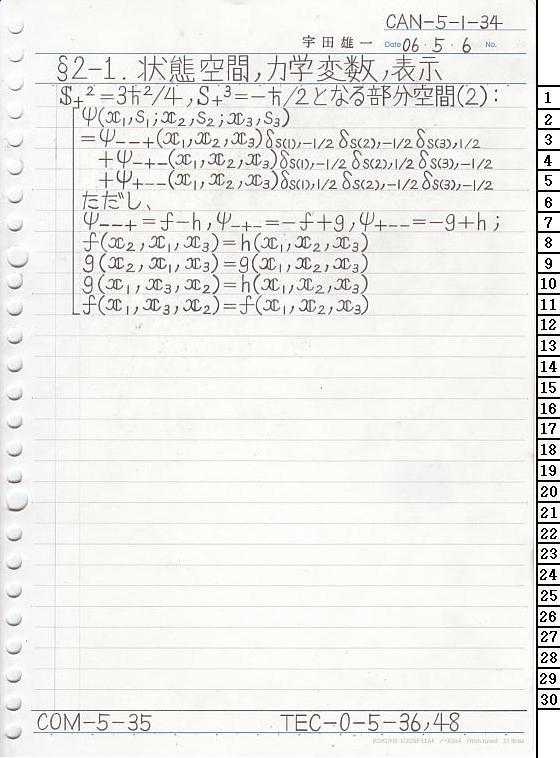 CAN-5-1-34
宇田雄一 Date 06・5・6 No.
§2-1. 状態空間,力学変数,表示
𝕊₊²=3ℏ²/4,S₊³=-ℏ/2となる部分空間(2):
ψ(𝕩₁,S₁;𝕩₂,S₂;𝕩₃,S₃)
=ψ₋₋₊(𝕩₁,𝕩₂,𝕩₃)δs(1),-1/2 δs(2),-1/2 δs(3),1/2
+ψ₋₊₋(𝕩₁,𝕩₂,𝕩₃)δs(1),-1/2 δs(2),1/2 δs(3),-1/2
+ψ₊₋₋(𝕩₁,𝕩₂,𝕩₃)δs(1),1/2 δs(2),-1/2 δs(3),-1/2
ただし、
ψ₋₋₊=f-h,ψ₋₊₋=-f+g,ψ₊₋₋=-g+h;
f(𝕩₂,𝕩₁,𝕩₃)=h(𝕩₁,𝕩₂,𝕩₃)
g(𝕩₂,𝕩₁,𝕩₃)=g(𝕩₁,𝕩₂,𝕩₃)
g(𝕩₁,𝕩₃,𝕩₂)=h(𝕩₁,𝕩₂,𝕩₃)
f(𝕩₁,𝕩₃,𝕩₂)=f(𝕩₁,𝕩₂,𝕩₃)
1
2
3
4
5
6
7
8
9
10
11
12
13
14
15
16
17
18
19
20
21
22
23
24
25
26
27
28
29
30
COM-5-35 TEC-0-5-36,48
KOKUYO LOOSE-LEAF ノ-836A 7mm ruled 31 lines